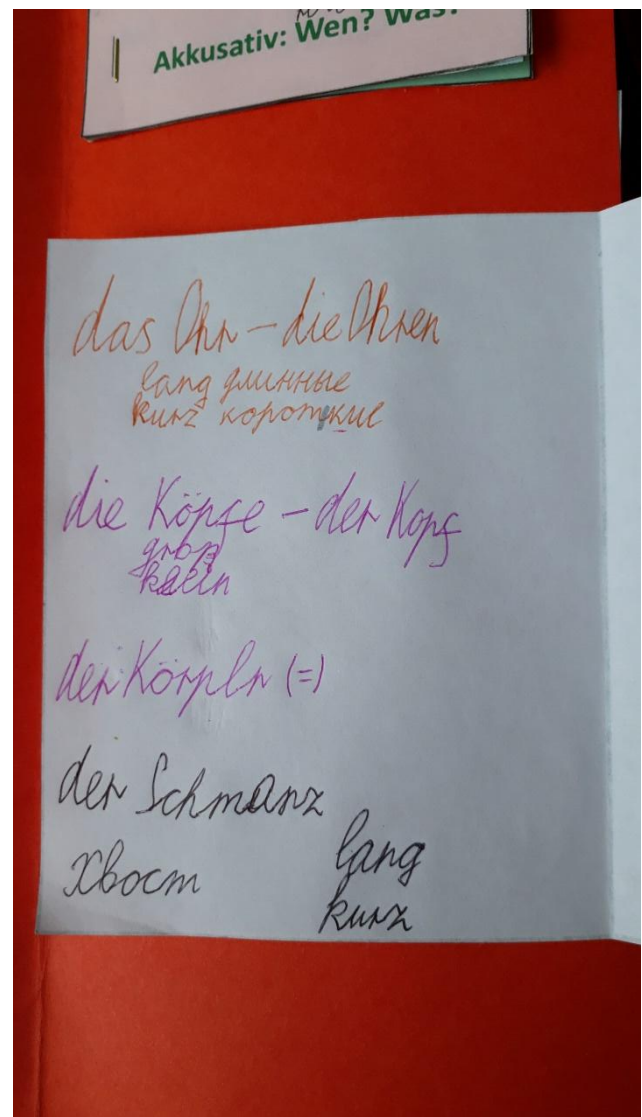 Akkusativ: Wen? Was?
das Ohr – die Ohren
lang длинные
kurz короткие
die Köpfe – der Kopf
groß
klein
der Körper (=)
der Schwanz
хвост
lang
kurz